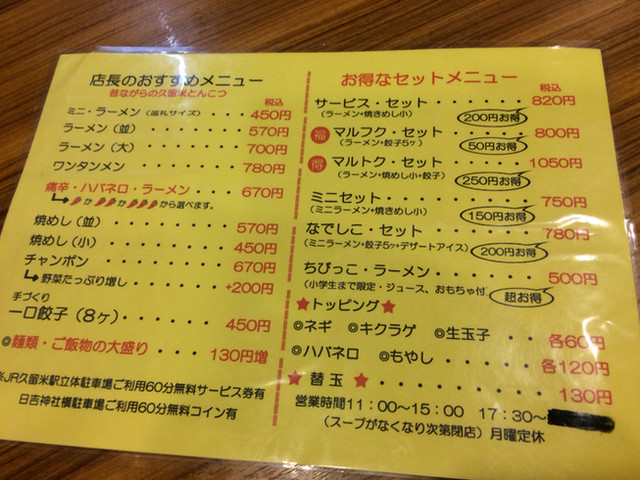 店長のおすすめメニュー
昔ながらの久留米とんこつ
税込
ミニ・ラーメン(巡礼サイズ)・・・450円
ラーメン(並)・・・・・・・570円
ラーメン(大)・・・・・・・700円
ワンタンメン・・・・・・・780円
痛辛・ハバネロ・ラーメン・・・・670円
か か から選べます。
焼めし(並)・・・・・・・570円
焼めし(小)・・・・・・・450円
チャンポン・・・・・・・670円
野菜たっぷり増し・・・・・+200円
手づくり
一口餃子(8ヶ)・・・・・450円
◎麺類・ご飯物の大盛り・・・・130円増
※JR久留米駅立体駐車場ご利用60分無料サービス券有
日吉神社横駐車場ご利用60分無料コイン有
お得なセットメニュー
税込
サービス・セット・・・・・・820円
(ラーメン+焼きめし小)
200円お得
福 マルフク・セット・・・・・800円
(ラーメン+餃子5ヶ)
50円お得
得 マルトク・セット・・・・・1050円
(ラーメン+焼めし小+餃子)
250円お得
ミニセット・・・・・・・750円
(ミニラーメン+焼きめし小)
150円お得
なでしこ・セット・・・・・・780円
(ミニラーメン+餃子5ヶ+デザートアイス)
200円お得
ちびっこ・ラーメン・・・・・500円
(小学生まで限定・ジュース、おもちゃ付
超お得
★トッピング★
◎ネギ ◎キクラゲ ◎生玉子・・各60円
◎ハバネロ ◎もやし・・・・・各120円
★替玉★・・・・・・・・130円
営業時間11:00〜15:00 17:30〜
(スープがなくなり次第閉店)月曜定休